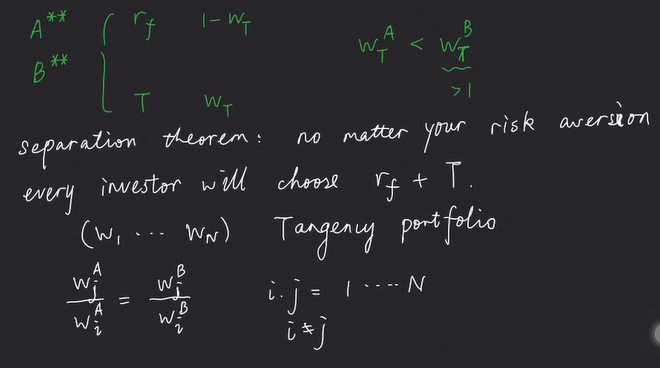 A** { r_f 1-w_T w_T^A < w_T^B
B** >1
T w_T
separation theorem: no matter your risk aversion
every investor will choose r_f + T.
(w_1 ... w_N) Tangency portfolio
w_j^A / w_i^A = w_j^B / w_i^B i. j = 1 .... N
i ≠ j